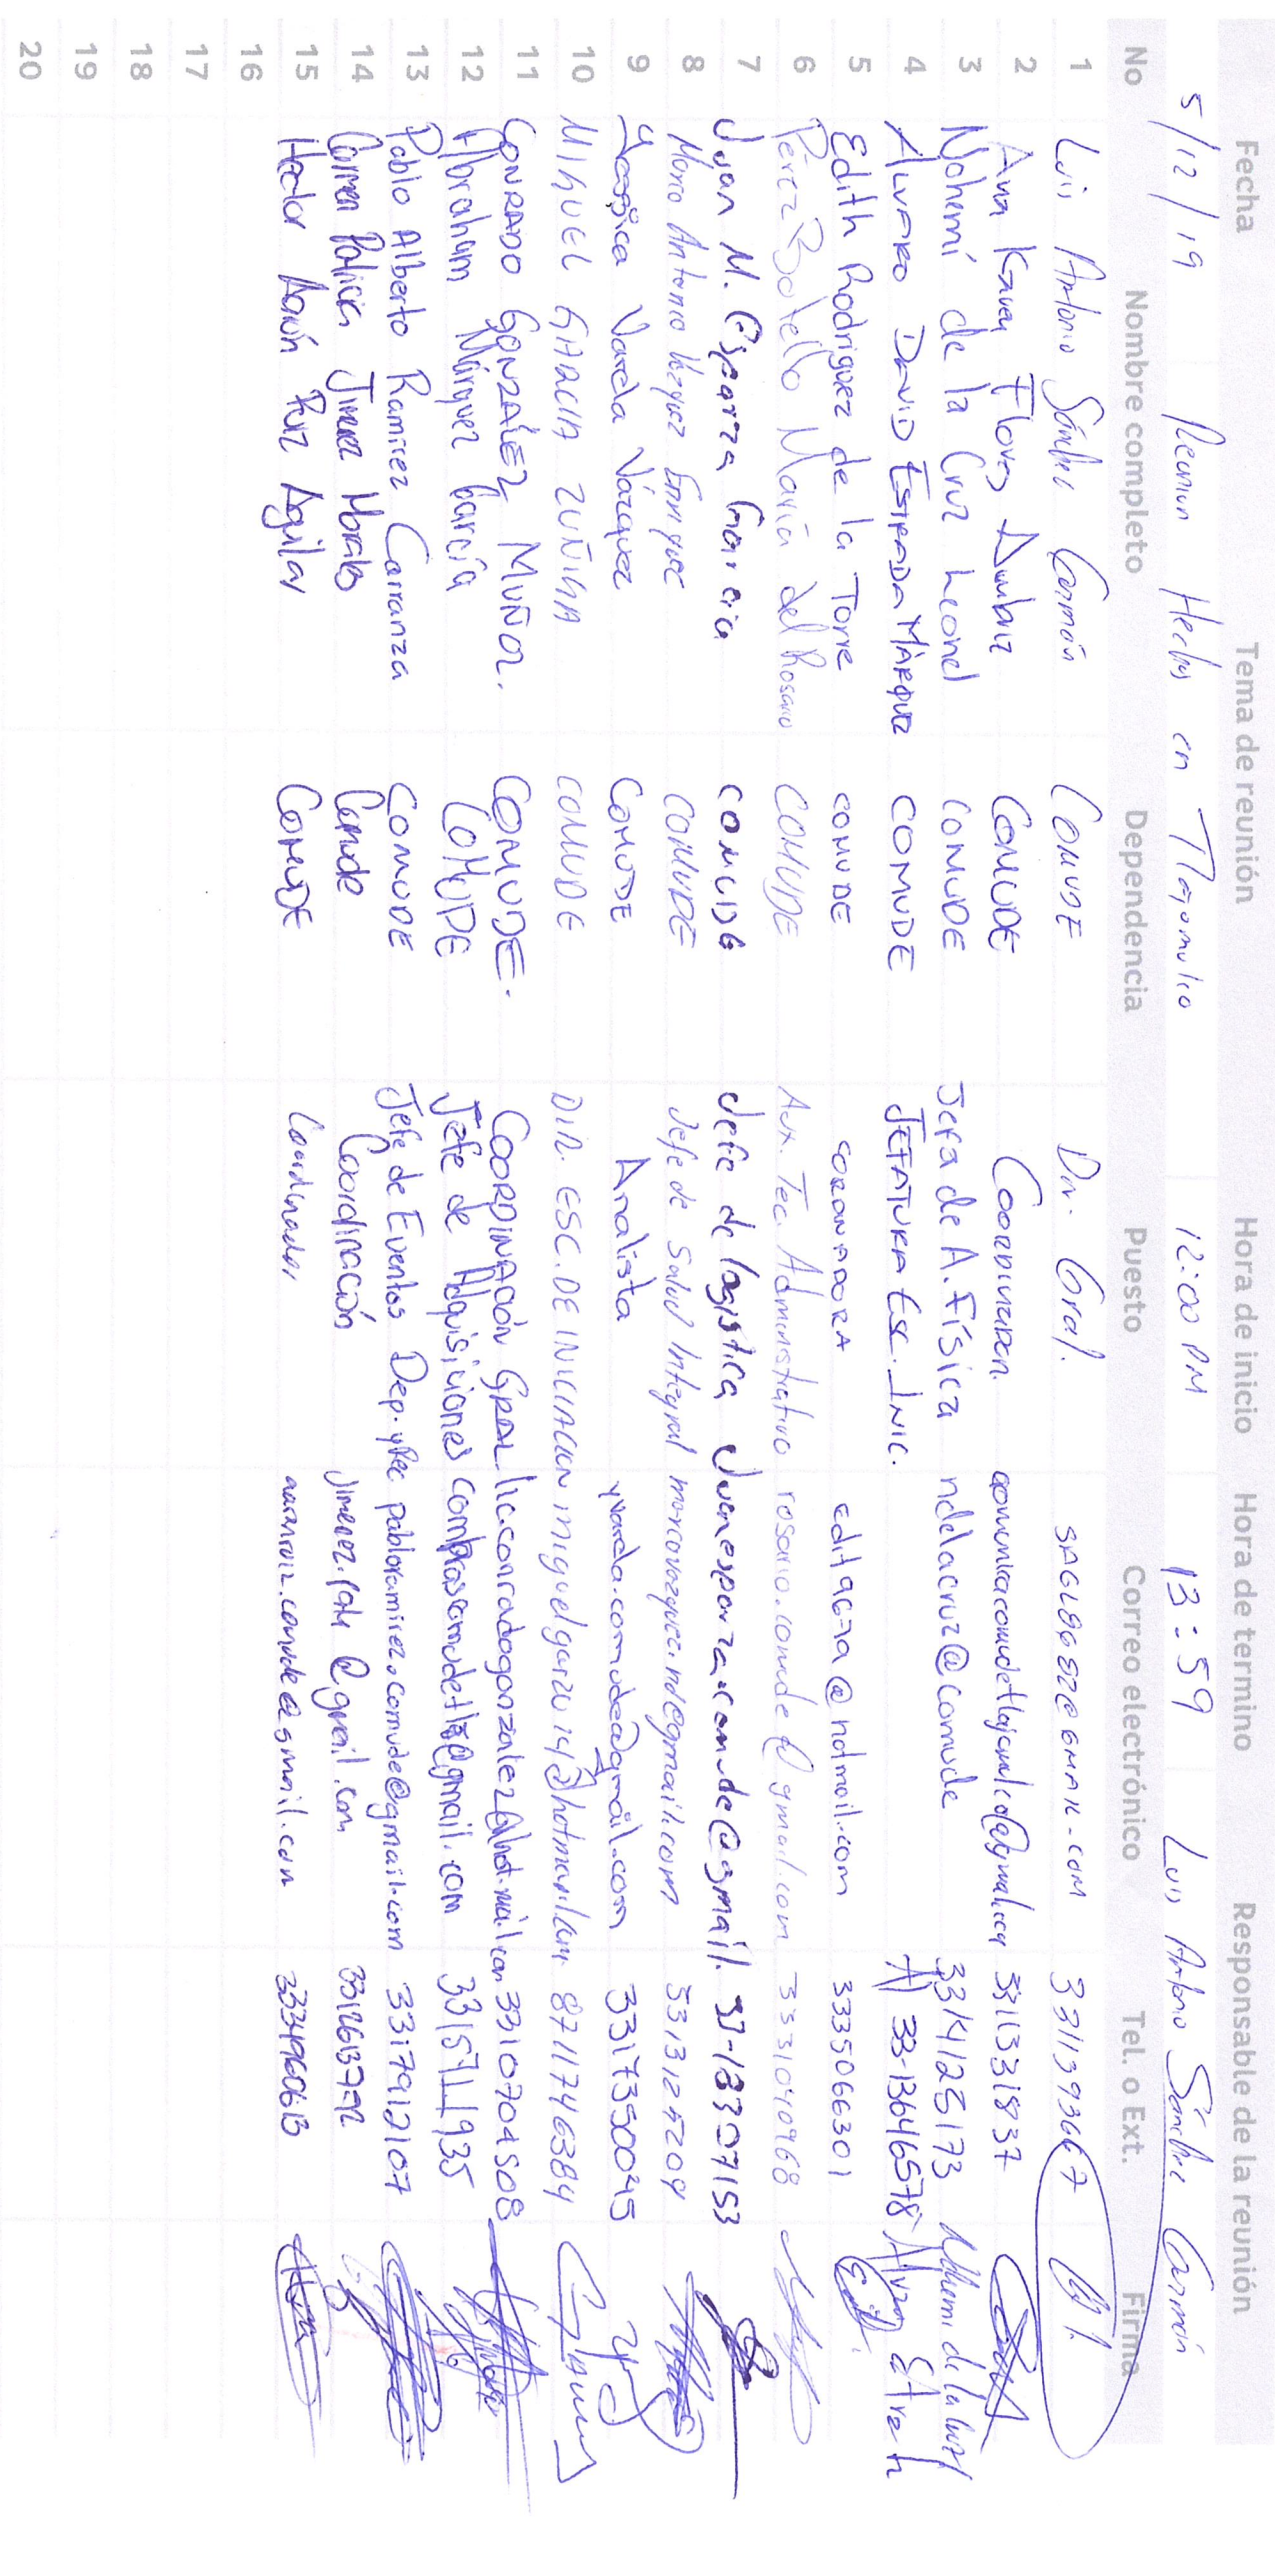 Fecha Tema de reunión Hora de inicio Hora de termino Responsable de la reunión
5/12/19 Reunion Hechos en Tlajomulco 12:00 PM 13:59 Luis Antonio Sánchez Carmón
No Nombre completo Dependencia Puesto Correo electrónico Tel. o Ext. Firma
1 Luis Antonio Sánchez Carmón COMUDE Dir. Gral. 
2 Ana Karen Flores Ambriz COMUDE 3311331837
3 Nohemí de la Cruz Leonel COMUDE Jefa de A. Física ndelacruz@comude 3314125173
4 ALVARO DAVID ESTRADA MÁRQUEZ COMUDE JEFATURA ESC. INIC. 33-13646578
5 Edith Rodriguez de la Torre COMUDE 3335066301
6 Pérez Botello María del Rosario COMUDE Aux. Tec. Administrativo rosario.comude@gmail.com 3331040968
7 Juan M. Esparza Garcia COMUDE Jefe de logistica Juanesparza.comude@gmail. 33-18307153
8 Marco Antonio Vazquez Enriquez COMUDE Jefe de Salud Integral
9 Yessica Varela Vázquez COMUDE Analista yvarela.comude@gmail.com 3317350045
10 MIGUEL GARCIA ZUÑIGA COMUDE DIR. ESC. DE INICIACION miguelgarzu14@hotmail.com 8711746384
11 CONRADO GONZÁLEZ MUÑOZ. COMUDE. COORDINACIÓN GRAL lic.conradogonzalez@hotmail.com 3310704508
12 Abraham Márquez García COMUDE Jefe de Adquisiciones 3315711935
13 Pablo Alberto Ramirez Carranza COMUDE Jefe de Eventos Dep. y Rec pabloramirez.comude@gmail.com 3317912107
14 Carmen Patricia Jimenez Morales Comude Coordinación jimenez.paty@gmail.com
15 Hector Aarón Ruiz Aguilar COMUDE Coordinador aaronruiz.comude@gmail.com
16
17
18
19
20